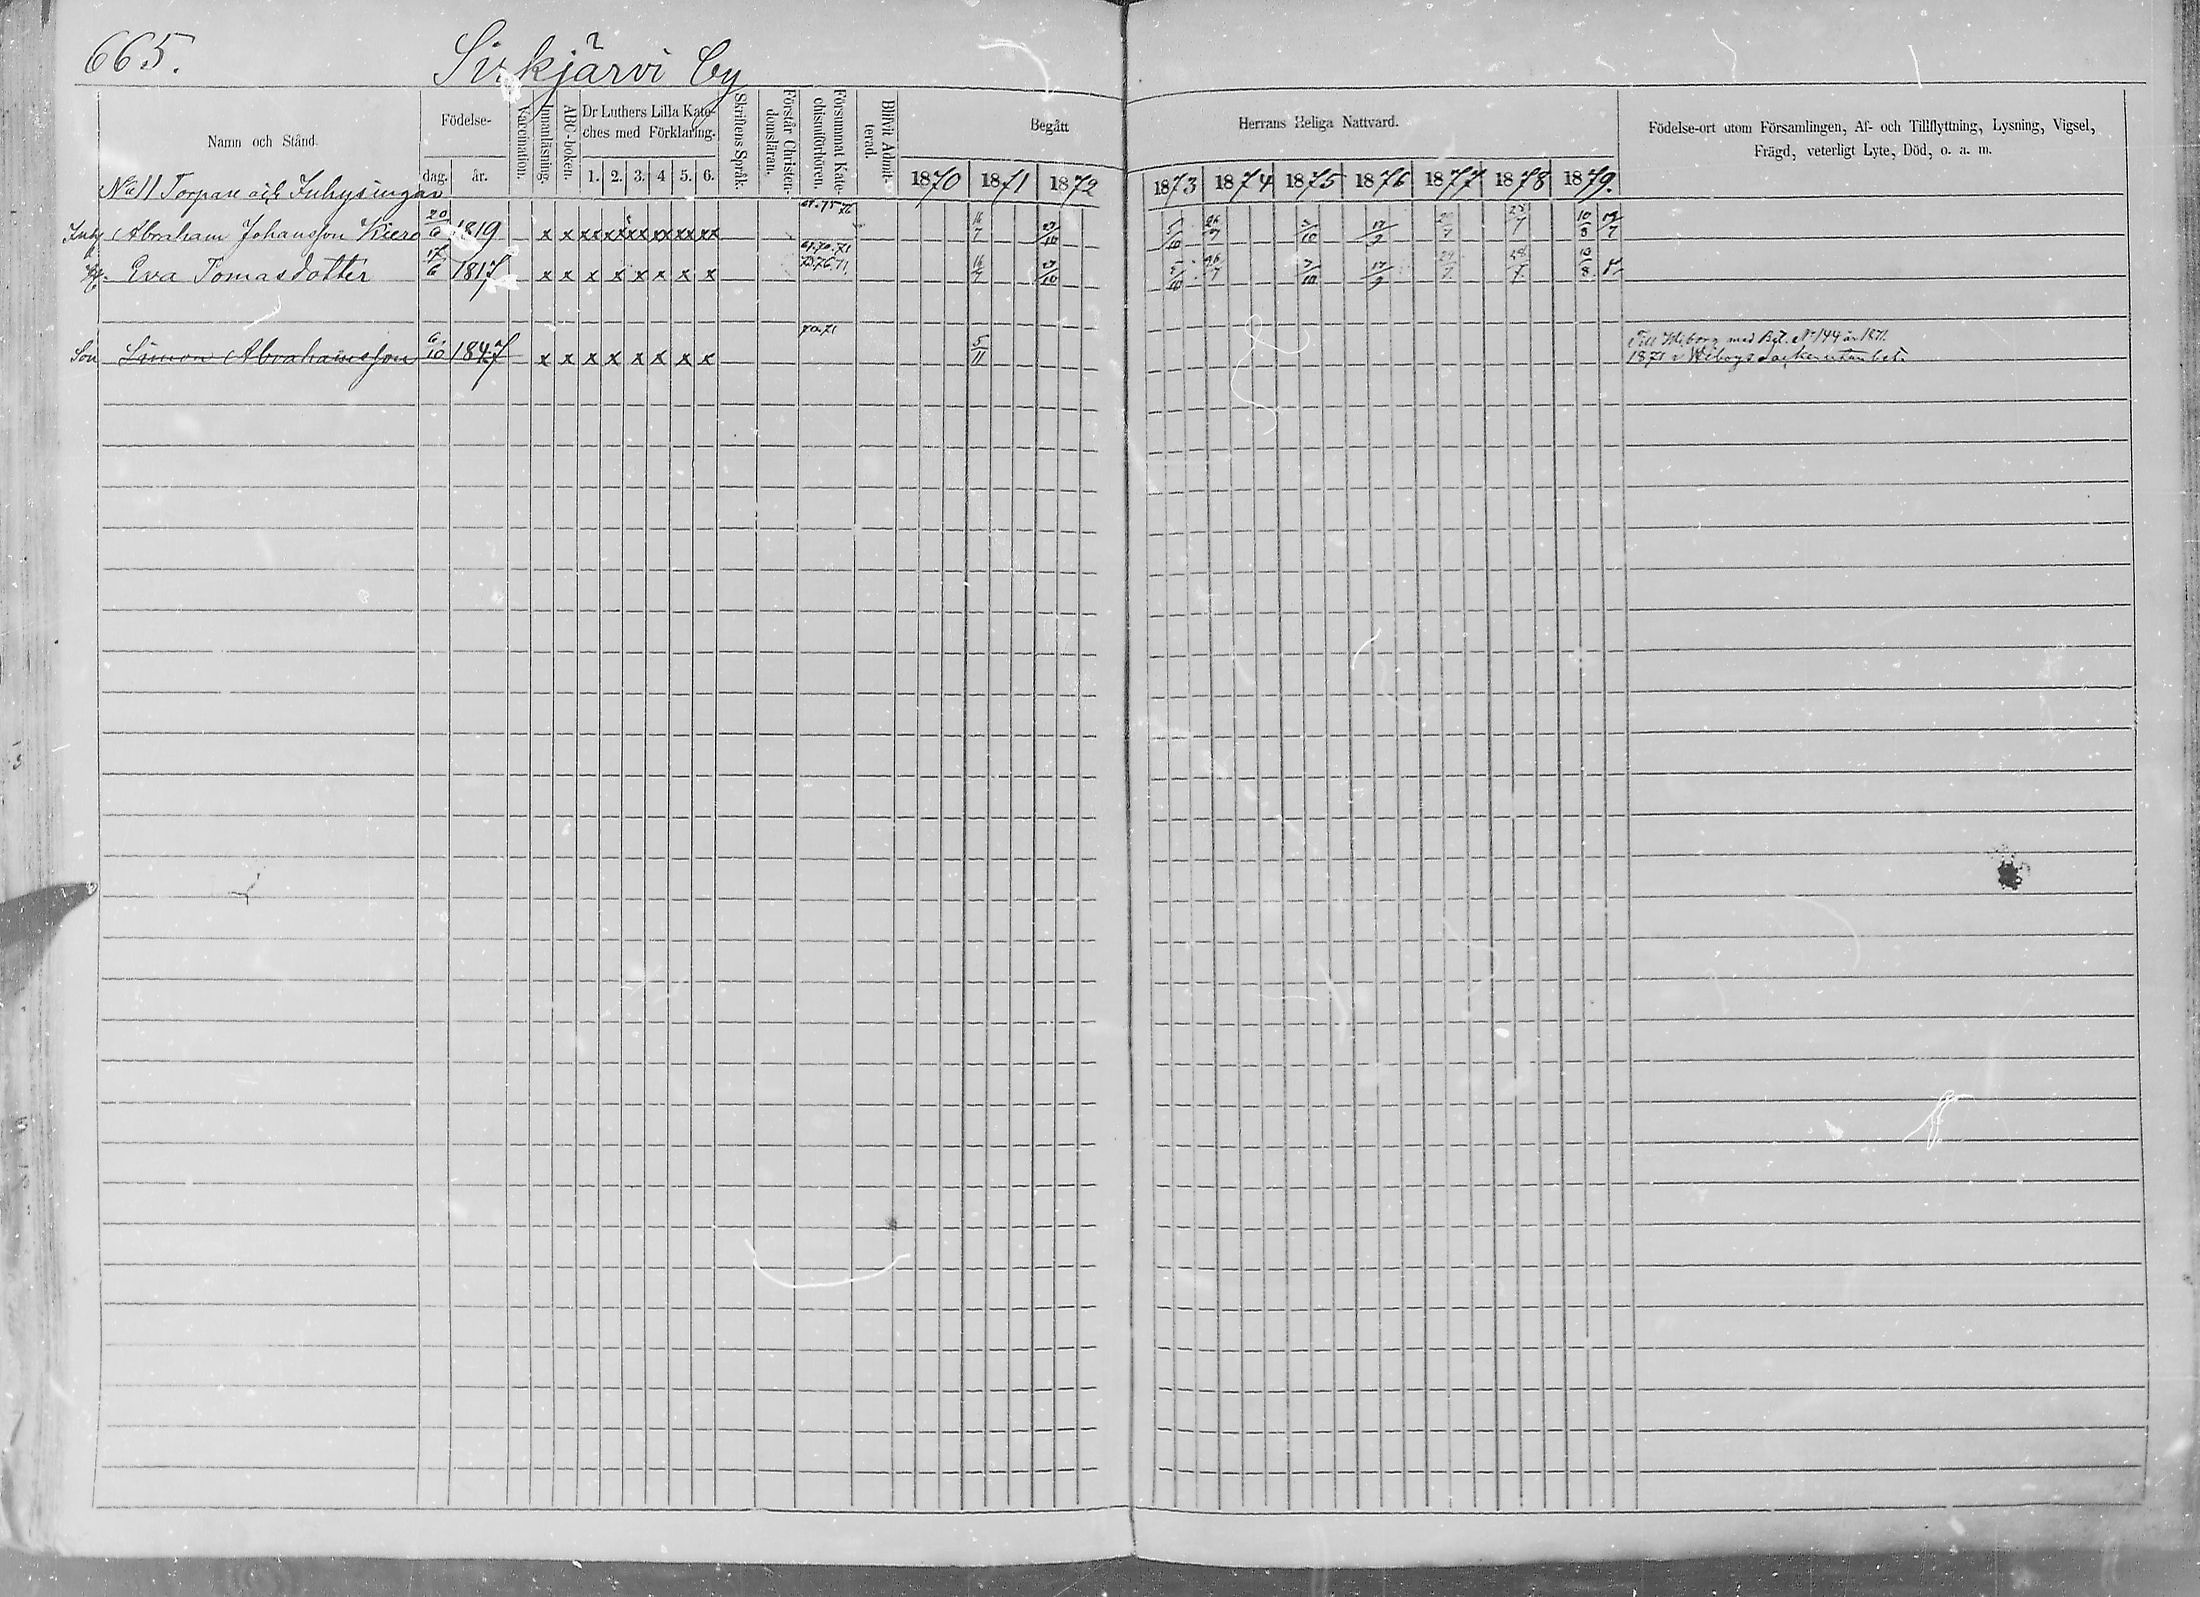 665.
Sirkjärvi by
Namn och Stånd.
Födelse-
dag. år.
Vaccination.
Innanläsning.
ABC-boken.
Dr Luthers Lilla Kate-
ches med Förklaring.
1. 2. 3. 4 5. 6.
Skriftens Språk.
Förstår Christen-
domsläran.
Försummat Kate-
chismiförhören.
Blifvit Admit-
terad.
Begått
Herrans Heliga Nattvard.
1870 1871 1872 1873 1874 1875 1876 1877 1878 1879.
Födelse-ort utom Församlingen, Af- och Tillflyttning, Lysning, Vigsel,
Frägd, veterligt Lyte, Död, o. a. m.
No 11 Torpare och Inhysingar
Inh Abraham Johansson Kiero 20/6 1819 x x xx xx xx xx xx xx 16/7 29/10 5/10 26/7 3/10 17/9 29/7 28/7 10/8
Eva Tomasdotter 17/6 1817 x x x x x x x x 16/7 29/10 5/10 26/7 3/10 17/9 29/7 28/7 10/8
Son Simon Abrahamsson 6/10 1847 x x x x x x x x 70.71 5/11
Till Wiborg med Bet. No 144 år 1871.
1871 i Wiborgs socken utan bet.